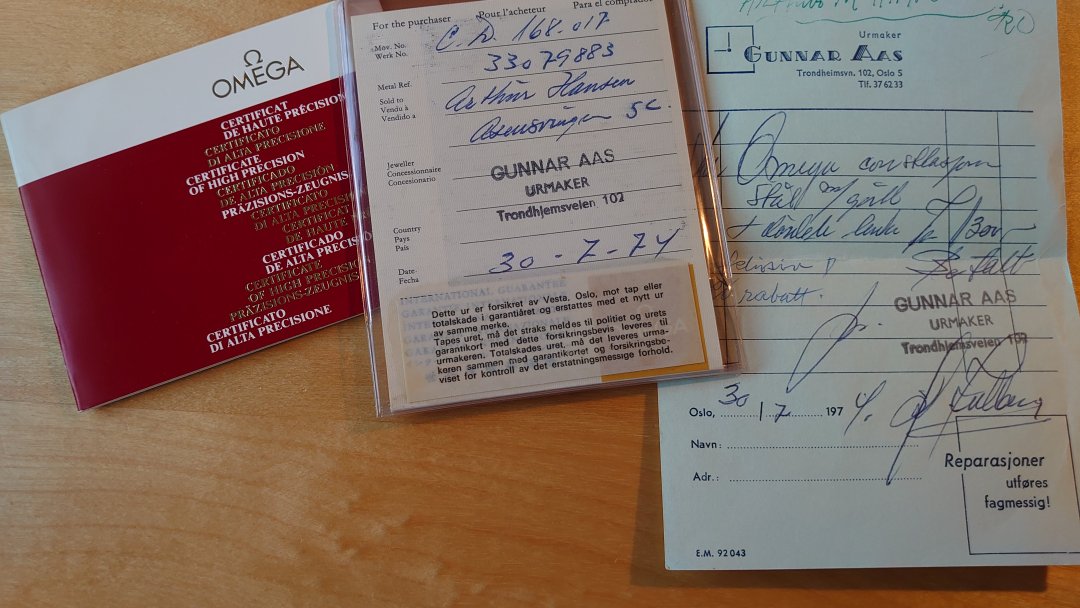 Ω
OMEGA
CERTIFICAT
DE HAUTE PRÉCISION
CERTIFICATO
DI ALTA PRECISIONE
CERTIFICATE
OF HIGH PRECISION
CERTIFICADO
DE ALTA PRECISIÓN
PRÄZISIONS-ZEUGNIS
CERTIFICATO
DI ALTA PRECIS
CERTIFICAT
DE HAUTE
CERTIFICADO
DE ALTA PRECIS
CERTIFICATE
OF HIGH PRECISIO
PRÄZISIONS-ZEUGNIS
CERTIFICATO
DI ALTA PRECISIONE
For the purchaser Pour l'acheteur Para el comprador
Mov. No.
Werk No.
C.D. 168.017
33079883
Metal Ref.
Sold to
Vendu à
Vendido a
Arthur Hansen
5c.
Jeweller
Concessionnaire
Concesionario
GUNNAR AAS
URMAKER
Trondhjemsveien 102
Country
Pays
País
Date
Fecha
30-7-74
INTERNATIONAL GUARANTEE
Dette ur er forsikret av Vesta, Oslo, mot tap eller
totalskade i garantiåret og erstattes med et nytt ur
av samme merke.
Tapes uret, må det straks meldes til politiet og urets
garantikort med dette forsikringsbevis leveres til
urmakeren. Totalskades uret, må det leveres urma-
keren sammen med garantikortet og forsikringsbe-
viset for kontroll av det erstatningsmessige forhold.
Urmaker
GUNNAR AAS
Trondheimsvn. 102, Oslo 5
Tlf. 37 62 33
Omega
Stål m/gull
+ lenke
rabatt.
GUNNAR AAS
URMAKER
Trondhjemsveien 102
Oslo, 30/7 1974.
Navn:
Adr.:
Reparasjoner
utføres
fagmessig!
E.M. 92 043